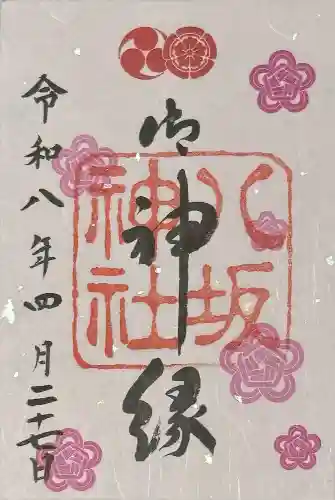 御神縁
八坂神社
令和八年四月二十七日